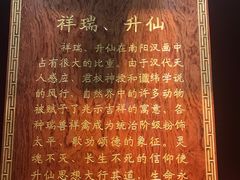 祥瑞、升仙
祥瑞、升仙在南阳汉画中
占有很大的比重。由于汉代天
人感应、君权神授和谶纬学说
的风行，自然界中的许多动物
被赋予了兆示吉祥的寓意、各
种瑞兽祥禽成为统治阶级粉饰
太平、歌功颂德的象征。灵
魂不灭、长生不死的信仰使
升仙思想大行其道，生命永